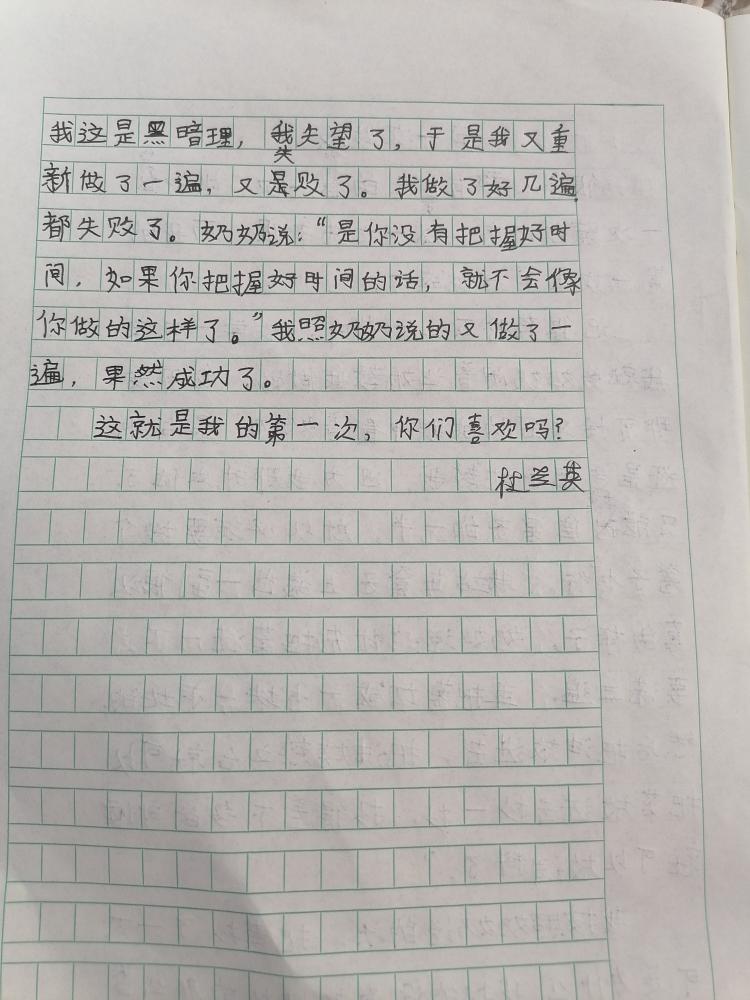 我这是黑暗理，我失望了，于是我又重
失
新做了一遍，又是败了。我做了好几遍，
都失败了。奶奶说：“是你没有把握好时
间，如果你把握好时间的话，就不会像
你做的这样了。”我照奶奶说的又做了一
遍，果然成功了。
这就是我的第一次，你们喜欢吗？
杜兰英